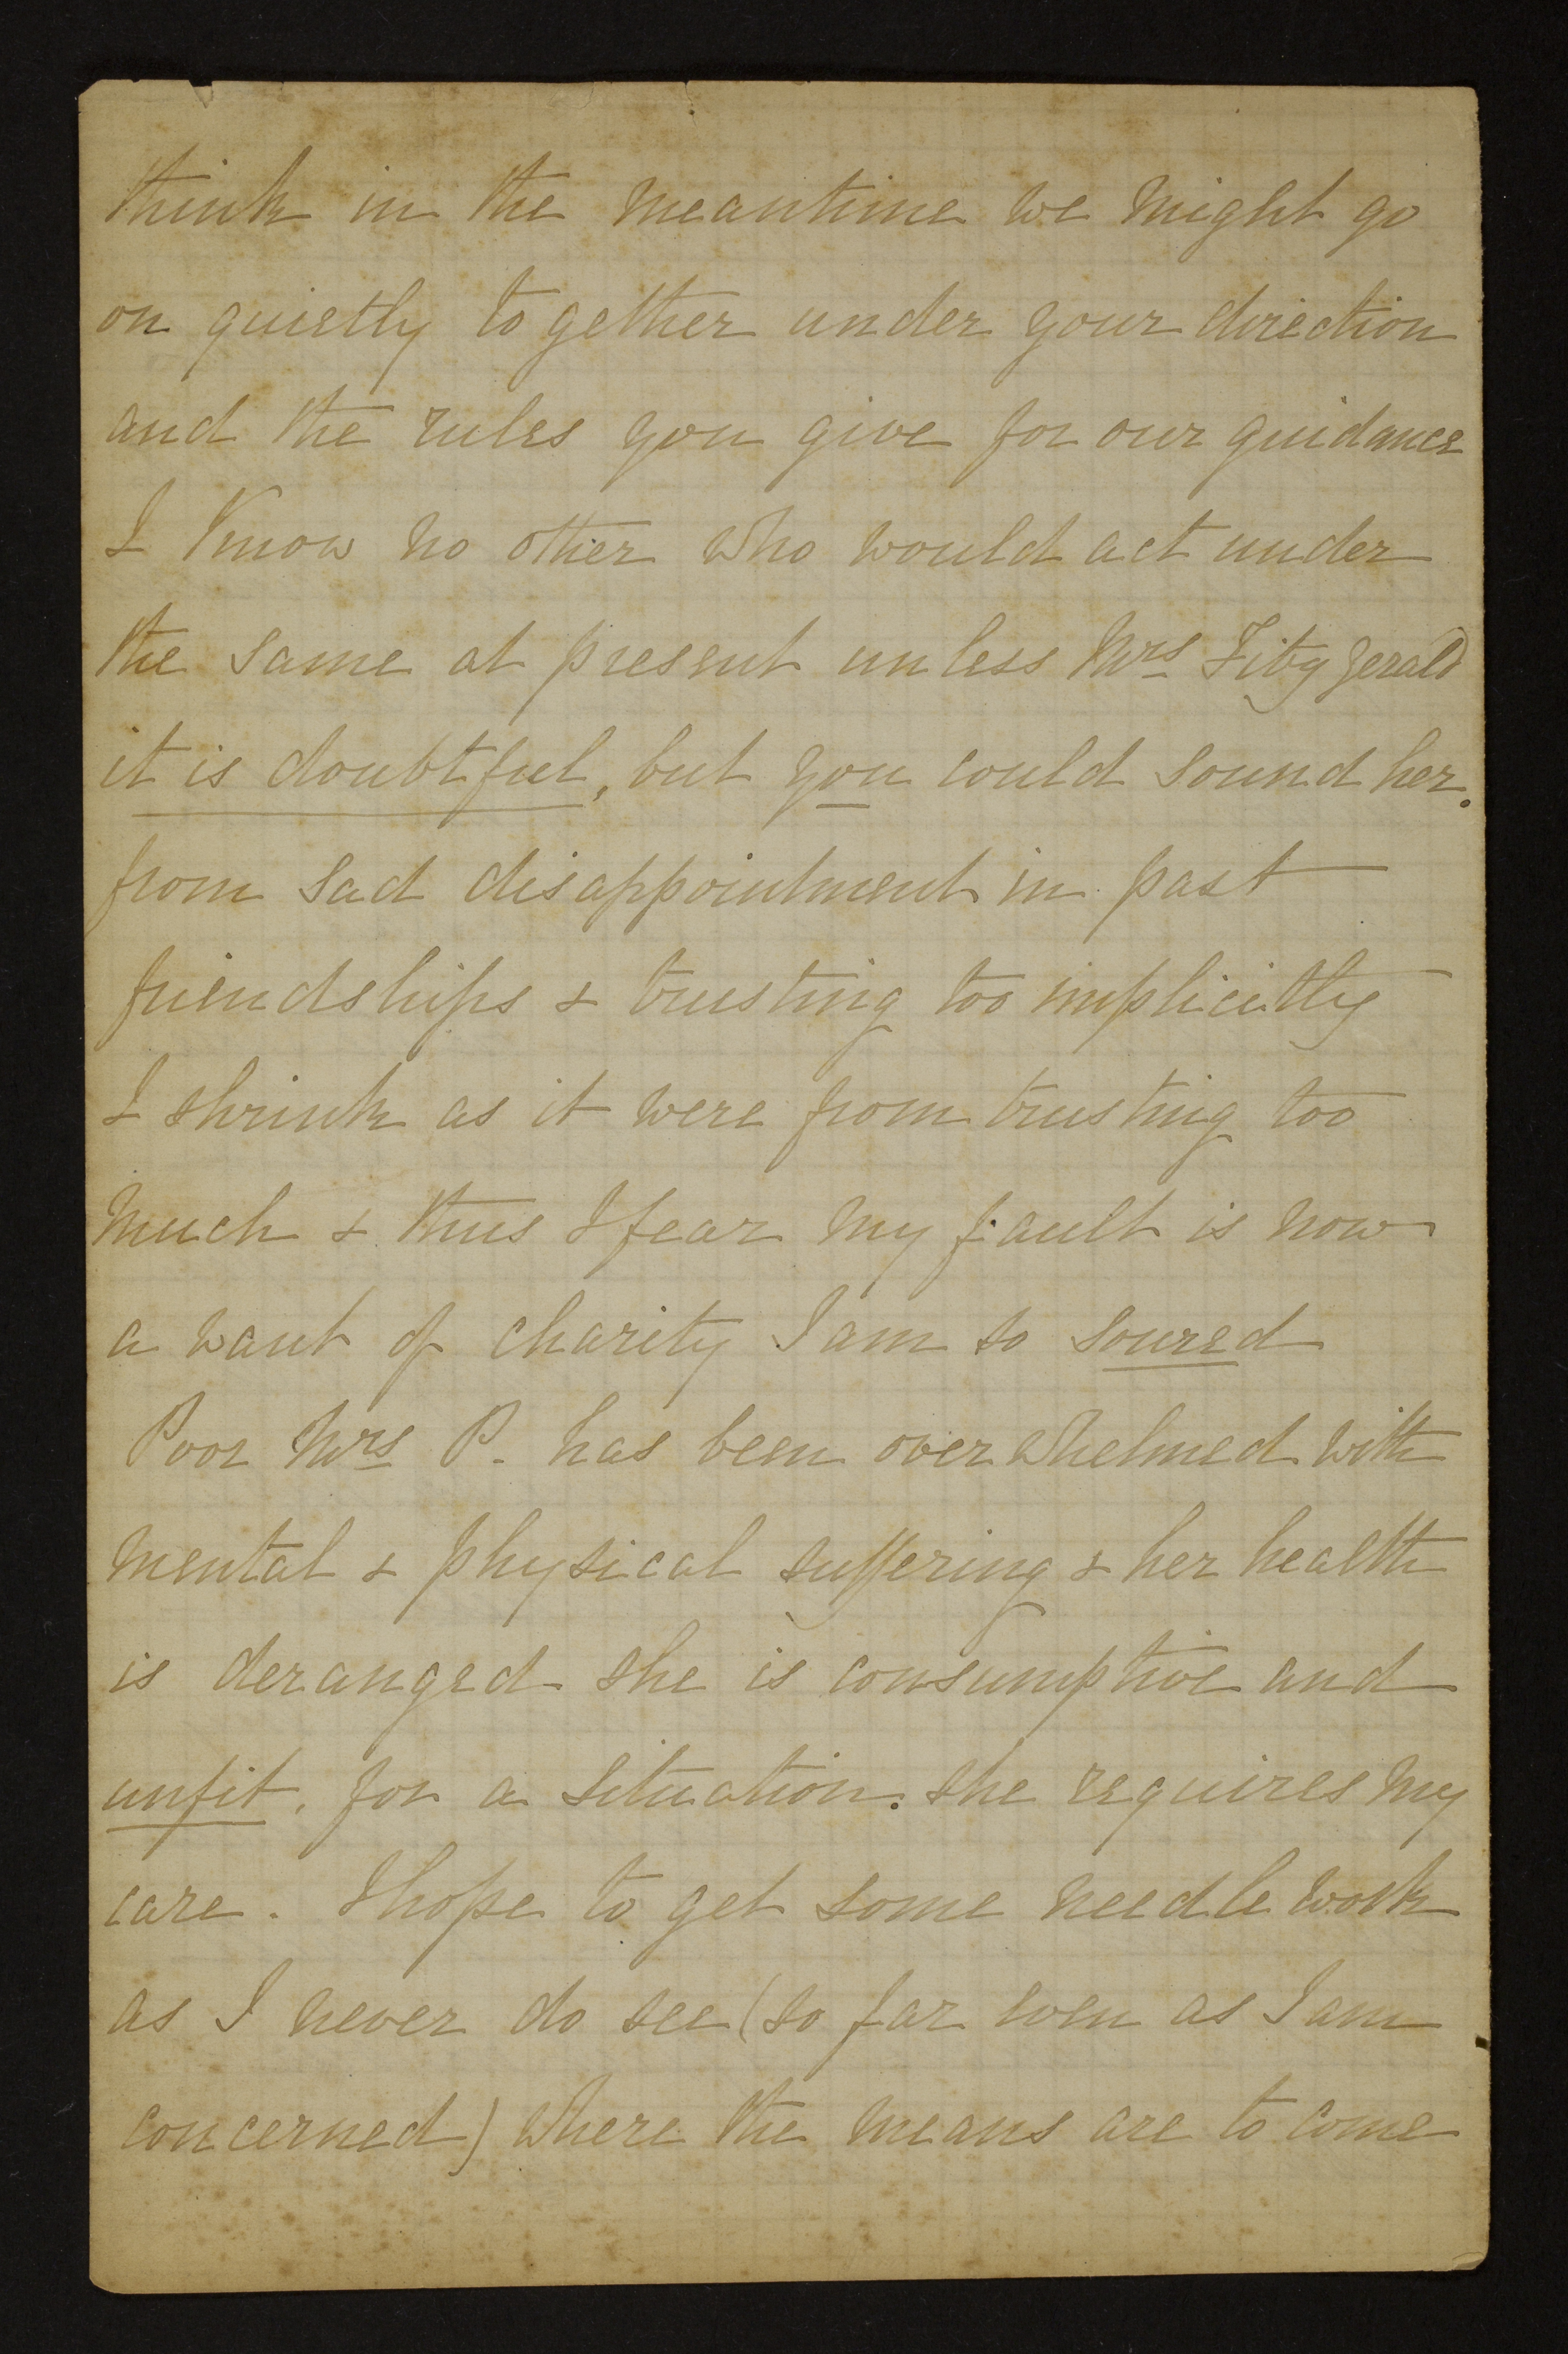 think in the meantime we might go
on quietly together under your direction
and the rules you give for our guidance
I know no other who would act under
the same at present unless Mrs Fitzgerald
it is doubtful, but you could sound her.
from sad disappointment in past
friendships & trusting too implicitly
I shrink as it were from trusting too
much & thus I fear my fault is now
a want of charity I am so soured
Poor Mrs P. has been overwhelmed with
mental & physical suffering & her health
is deranged she is consumptive and
unfit. for a situation. she requires my
care. I hope to get some needle work
as I never do see (so far even as I am
concerned) where the means are to come